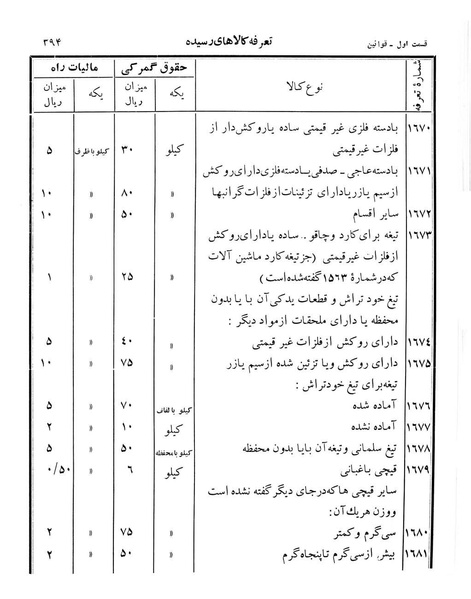 قسمت اول ـ قوانین تعرفه کالاهای رسیده ۳۹۴
شمارهٔ تعرفه نوع کالا حقوق گمرکی مالیات راه
یکه میزان ریال یکه میزان ریال
۱۶۷۰ بادسته فلزی غیر قیمتی ساده یاروکش‌دار از
فلزات غیرقیمتی کیلو ۳۰ کیلو باظرف ۵
۱۶۷۱ بادسته‌عاجی ـ صدفی یادسته‌فلزی‌دارای روکش
ازسیم یازریادارای تزئینات‌ازفلزات گرانبها » ۸۰ » ۱۰
۱۶۷۲ سایر اقسام » ۵۰ » ۱۰
۱۶۷۳ تیغه برای‌کارد وچاقو .. ساده یادارای‌روکش
ازفلزات غیرقیمتی (جزتیغه‌کارد ماشین آلات
که‌درشمارهٔ ۱۵۶۳ گفته‌شده‌است) » ۲۵ » ۱
تیغ خود تراش و قطعات یدکی آن با یابدون
محفظه یا دارای ملحقات ازمواد دیگر :
۱۶۷۴ دارای روکش ازفلزات غیر قیمتی » ۴۰ » ۵
۱۶۷۵ دارای روکش ویا تزئین شده ازسیم یازر » ۷۵ » ۱۰
تیغه‌برای تیغ خودتراش:
۱۶۷۶ آماده شده کیلو با لفاف ۷۰ » ۵
۱۶۷۷ آماده نشده کیلو ۱۰ » ۲
۱۶۷۸ تیغ سلمانی وتیغه‌آن بایا بدون محفظه کیلو بامحفظه ۵۰ » ۵
۱۶۷۹ قیچی باغبانی کیلو ۶ » ۰/۵۰
سایر قیچی هاکه‌درجای دیگرگفته نشده است
ووزن هریك‌آن:
۱۶۸۰ سی‌گرم وکمتر » ۷۵ » ۲
۱۶۸۱ بیش‌ازسی‌گرم تاپنجاه‌گرم » ۵۰ » ۲